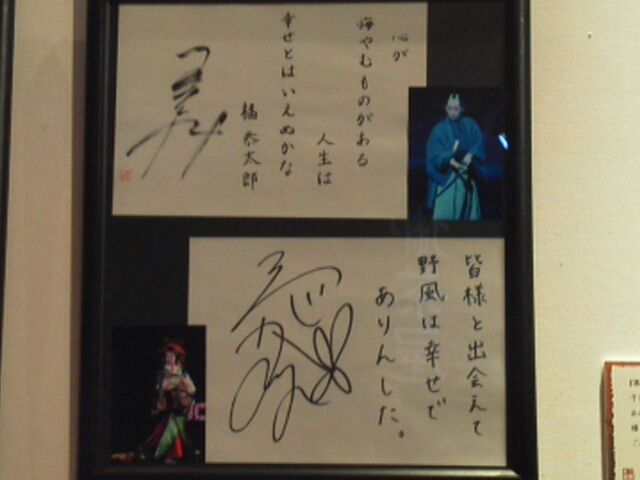 心が
悔やむものがある
人生は
幸せとはいえぬかな
橘恭太郎
皆様と出会えて
野風は幸せで
ありんした。